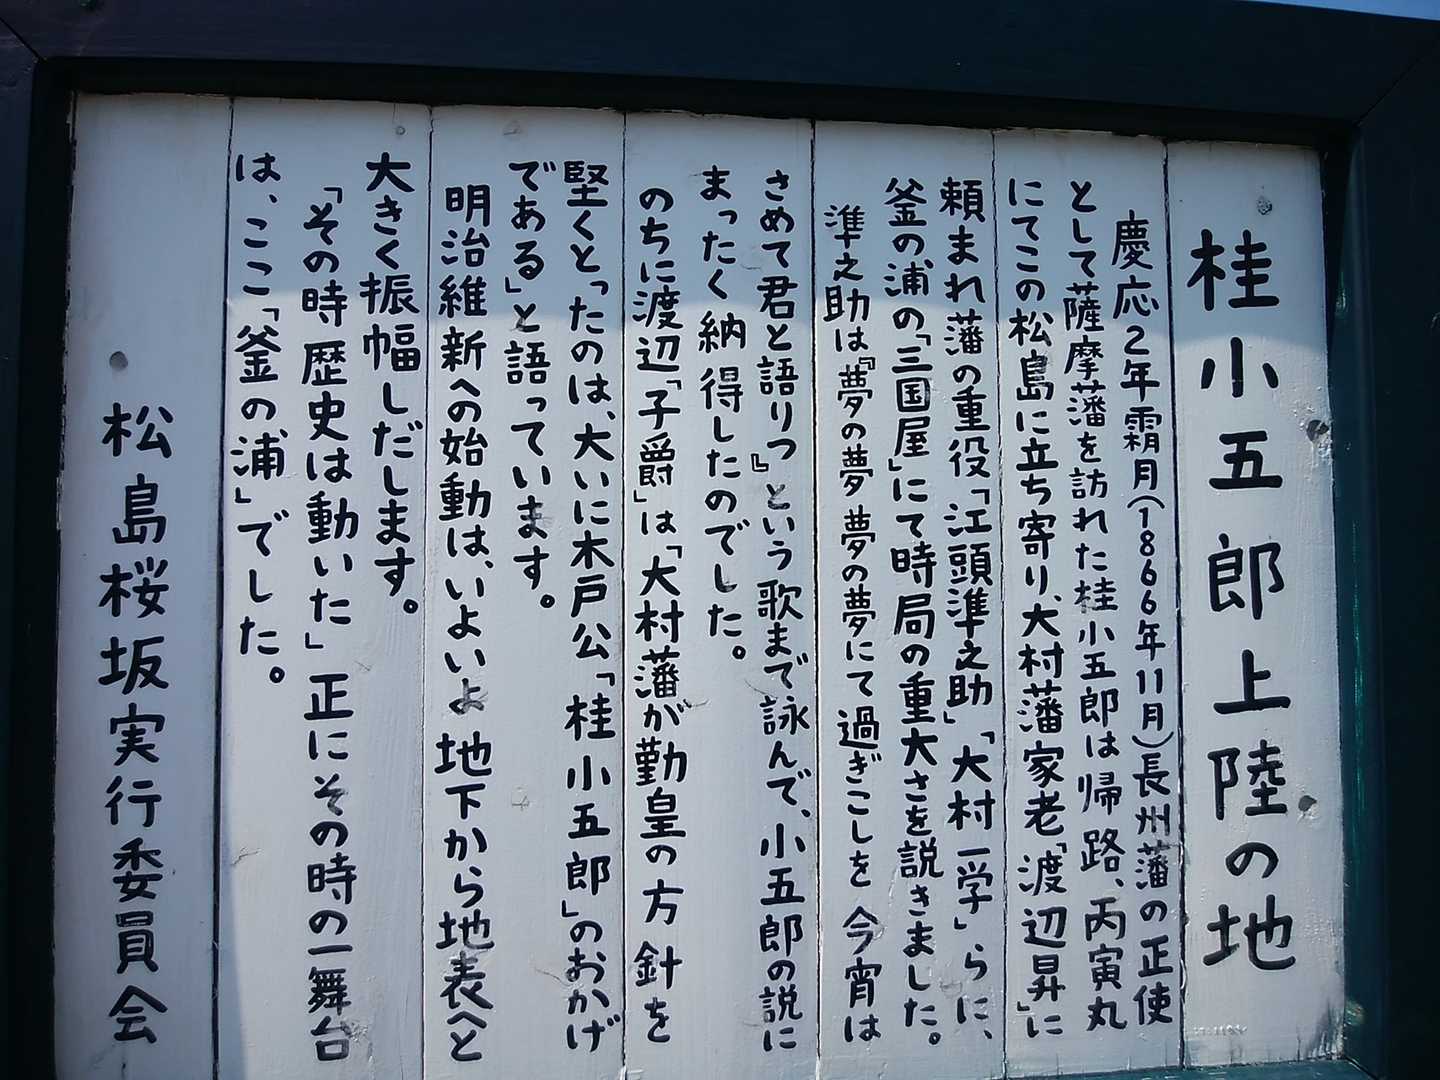 桂小五郎上陸の地
慶応2年霜月(1866年11月)長州藩の正使
として薩摩藩を訪れた桂小五郎は帰路、丙寅丸
にてこの松島に立ち寄り、大村藩家老「渡辺昇」に
頼まれ藩の重役「江頭準之助」「大村一学」らに、
釜の浦の「三国屋」にて時局の重大さを説きました。
準之助は『夢の夢 夢の夢にて過ぎこしを 今宵は
さめて君と語りつ』という歌まで詠んで、小五郎の説に
まったく納得したのでした。
のちに渡辺「子爵」は「大村藩が勤皇の方針を
堅くとったのは、大いに木戸公「桂小五郎」のおかげ
である」と語っています。
明治維新への始動は、いよいよ地下から地表へと
大きく振幅しだします。
「その時歴史は動いた」正にその時の一舞台
は、ここ「釜の浦」でした。
松島桜坂実行委員会